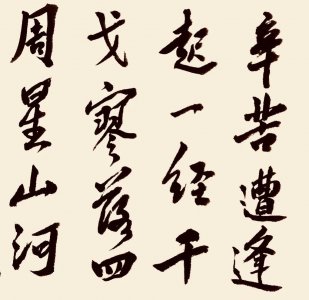 辛苦遭逢
起一经干
戈寥落四
周星山河